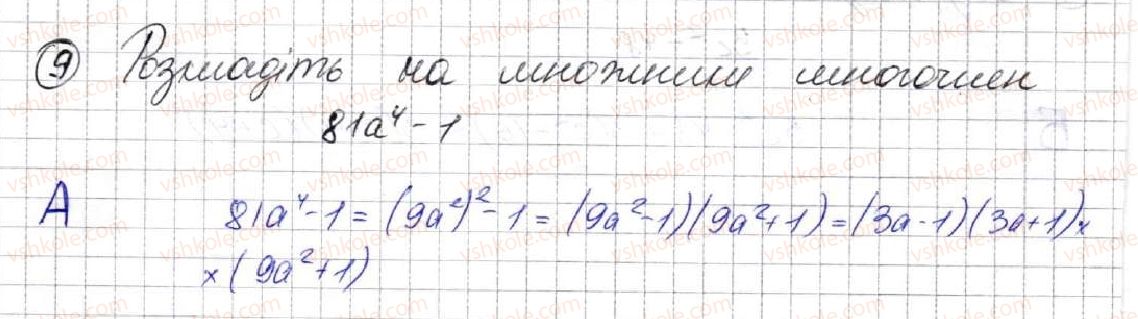 9 Розкладіть на множники многочлен
81a⁴ - 1
А 81a⁴ - 1 = (9a²)² - 1 = (9a² - 1)(9a² + 1) = (3a - 1)(3a + 1) ×
× (9a² + 1)